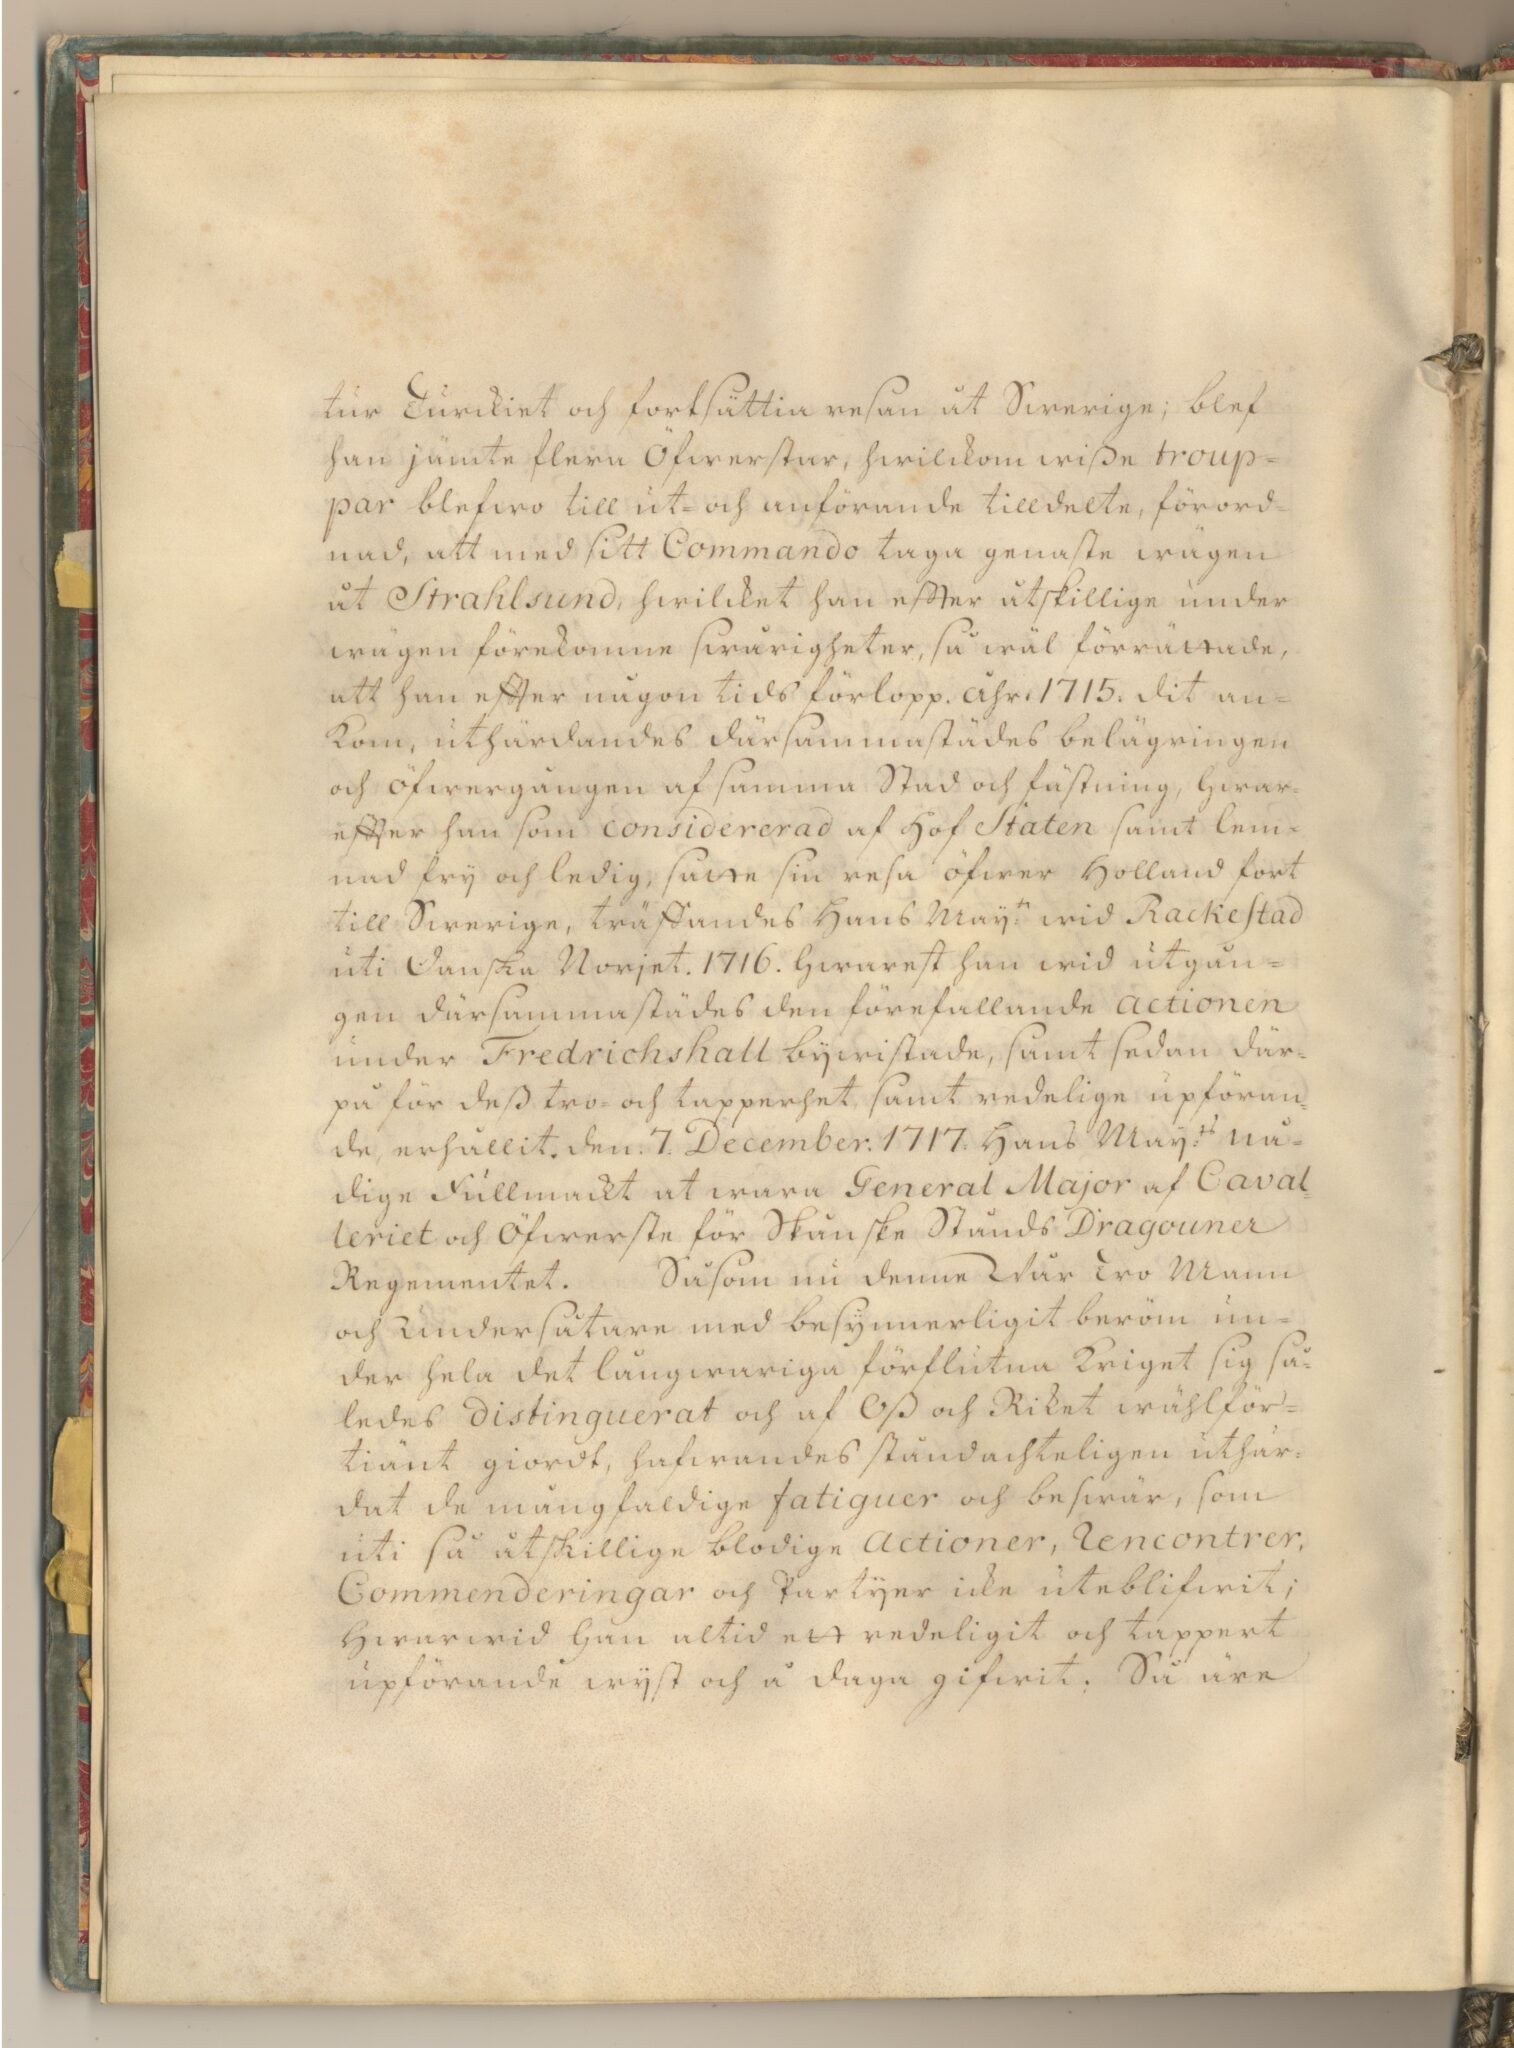 tur Turckiet och fortsättia resan åt Swerige; blef
han jämte flera Öfwerstar, hwilckom wiße troup=
par blefwo till ut= och anförande tilldelte, förord=
nad, att med sitt Commando taga genaste wägen
åt Strahlsund, hwilcket han effter åtskillige under
wägen förekomne swårigheter, så wäl förrättade,
att han effter någon tids förlopp. Ahr. 1715. dit an=
kom, uthärdandes därsammastädes belägringen
och Öfwergången af samma Stad och fästning, hwar=
effter han som considererad af Hof Staten samt lem=
nad fry och ledig, satte sin resa öfwer Holland fort
till Swerige, träffandes Hans Maytt wid Rackestad
uti Danska Norjet. 1716. hwarest han wid utgån=
gen därsammastädes den förefallande actionen
under Fredrichshall bywistade, samt sedan där=
på för deß tro= och tapperhet samt redelige upföran=
de, erhållit. den. 7. December. 1717. Hans May:ts nå=
dige Fullmackt at wara General Major af Caval=
leriet och Öfwerste för Skånske Stånds Dragouner
Regementet. Såsom nu denne Wår Tro Mann
och Undersåtare med besynnerligit beröm un=
der hela det långwariga förflutna Kriget sig så=
ledes distinguerat och af Oß och Riket wählför=
tiänt giordt, hafwandes ståndachteligen uthär=
dat de mångfaldige fatiguer och beswär, som
uti så åtskillige blodige Actioner, Rencontrer,
Commenderingar och Partyer icke uteblifwit;
Hwarwid han altid ett redeligit och tappert
upförande wyst och å daga gifwit. Så äre